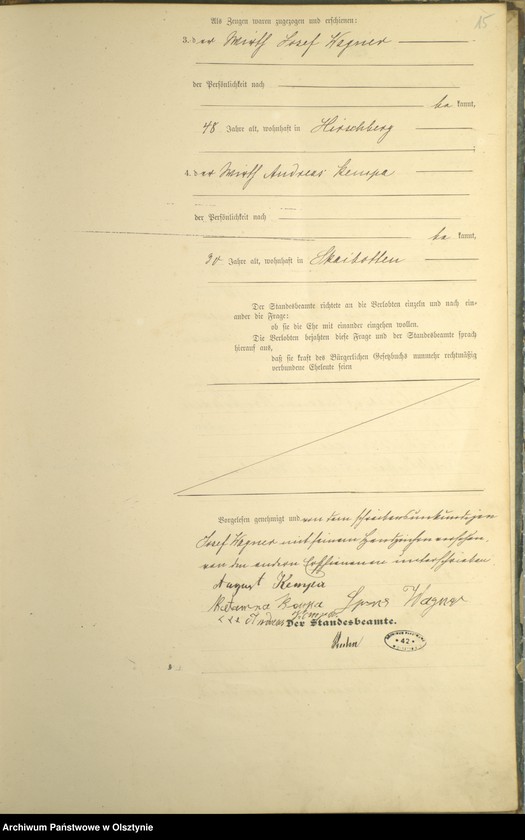 15
Als Zeugen waren zugezogen und erschienen:
3. der Wirth Josef Wagner
der Persönlichkeit nach
be kannt,
48 Jahre alt, wohnhaft in Hirschberg
4. der Wirth Andreas Kempa
der Persönlichkeit nach
be kannt,
30 Jahre alt, wohnhaft in Skaibotten
Der Standesbeamte richtete an die Verlobten einzeln und nach ein-
ander die Frage:
ob sie die Ehe mit einander eingehen wollen.
Die Verlobten bejahten diese Frage und der Standesbeamte sprach
hierauf aus,
daß sie kraft des Bürgerlichen Gesetzbuchs nunmehr rechtmäßig
verbundene Eheleute seien
Vorgelesen genehmigt und von dem schreibensunkundigen
Josef Wagner mit seinem Handzeichen versehen,
von den andren Erschienenen unterschrieben
August Kempa
Kempa Wagner
+++ Andreas Kempa
Der Standesbeamte.
42
Archiwum Państwowe w Olsztynie